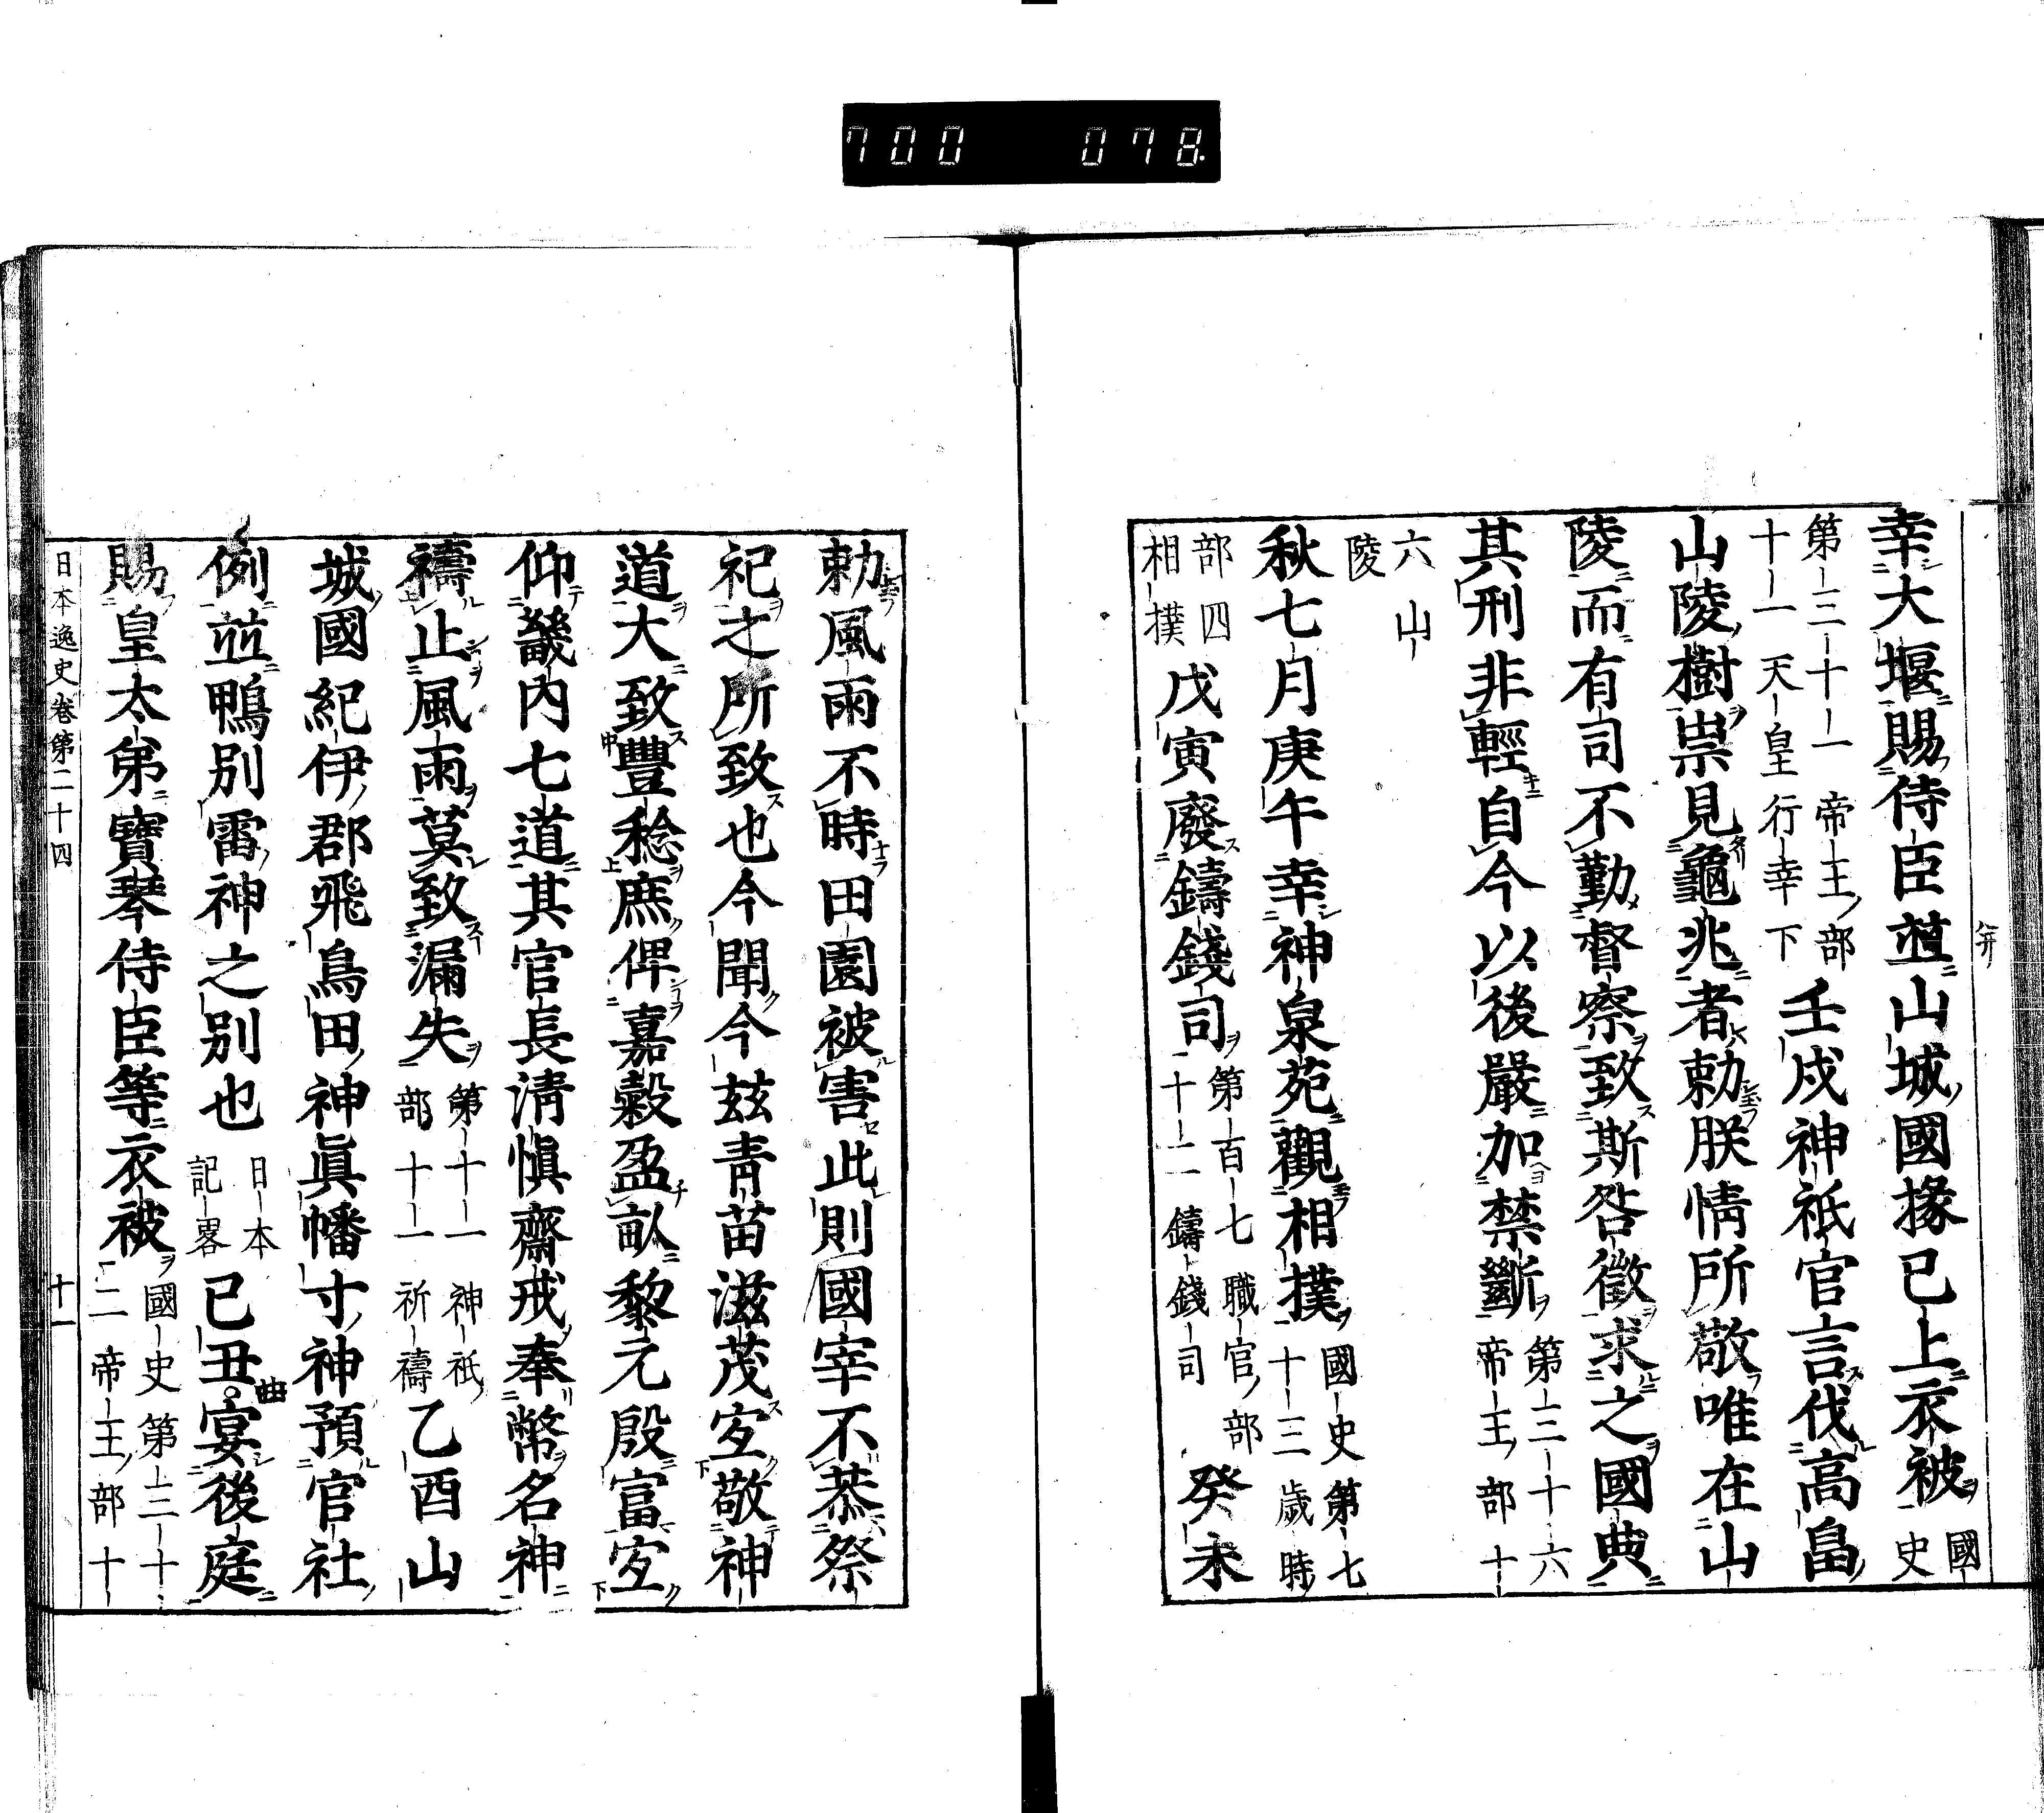 700 078
幸大堰賜侍臣並山城國掾已上衣被國史
第三十一帝王部十一天皇行幸下壬戌神祇官言伐高畠
山陵樹祟見龜兆者勅朕情所敬唯在山
陵而有司不勤督察致斯咎徵求之國典
其刑非輕自今以後嚴加禁斷第三十六帝王部十
六山陵
秋七月庚午幸神泉苑觀相撲國史第七十三歲時
部四相撲戊寅廢鑄錢司第百七職官部十二鑄錢司癸未
勅風雨不時田園被害此則國宰不恭祭
祀之所致也今聞今茲青苗滋茂宜敬神
道大致豐稔庶俾嘉穀盈畝黎元殷富宜
仰畿內七道其官長清愼齋戒奉幣名神
禱止風雨莫致漏失第十一神祇部十一祈禱乙酉山
城國紀伊郡飛鳥田神眞幡寸神預官社
例並鴨別雷神之別也日本記畧已丑宴後庭
賜皇太弟寶琴侍臣等衣被國史第三十二帝王部十
日本逸史卷第二十四 十一